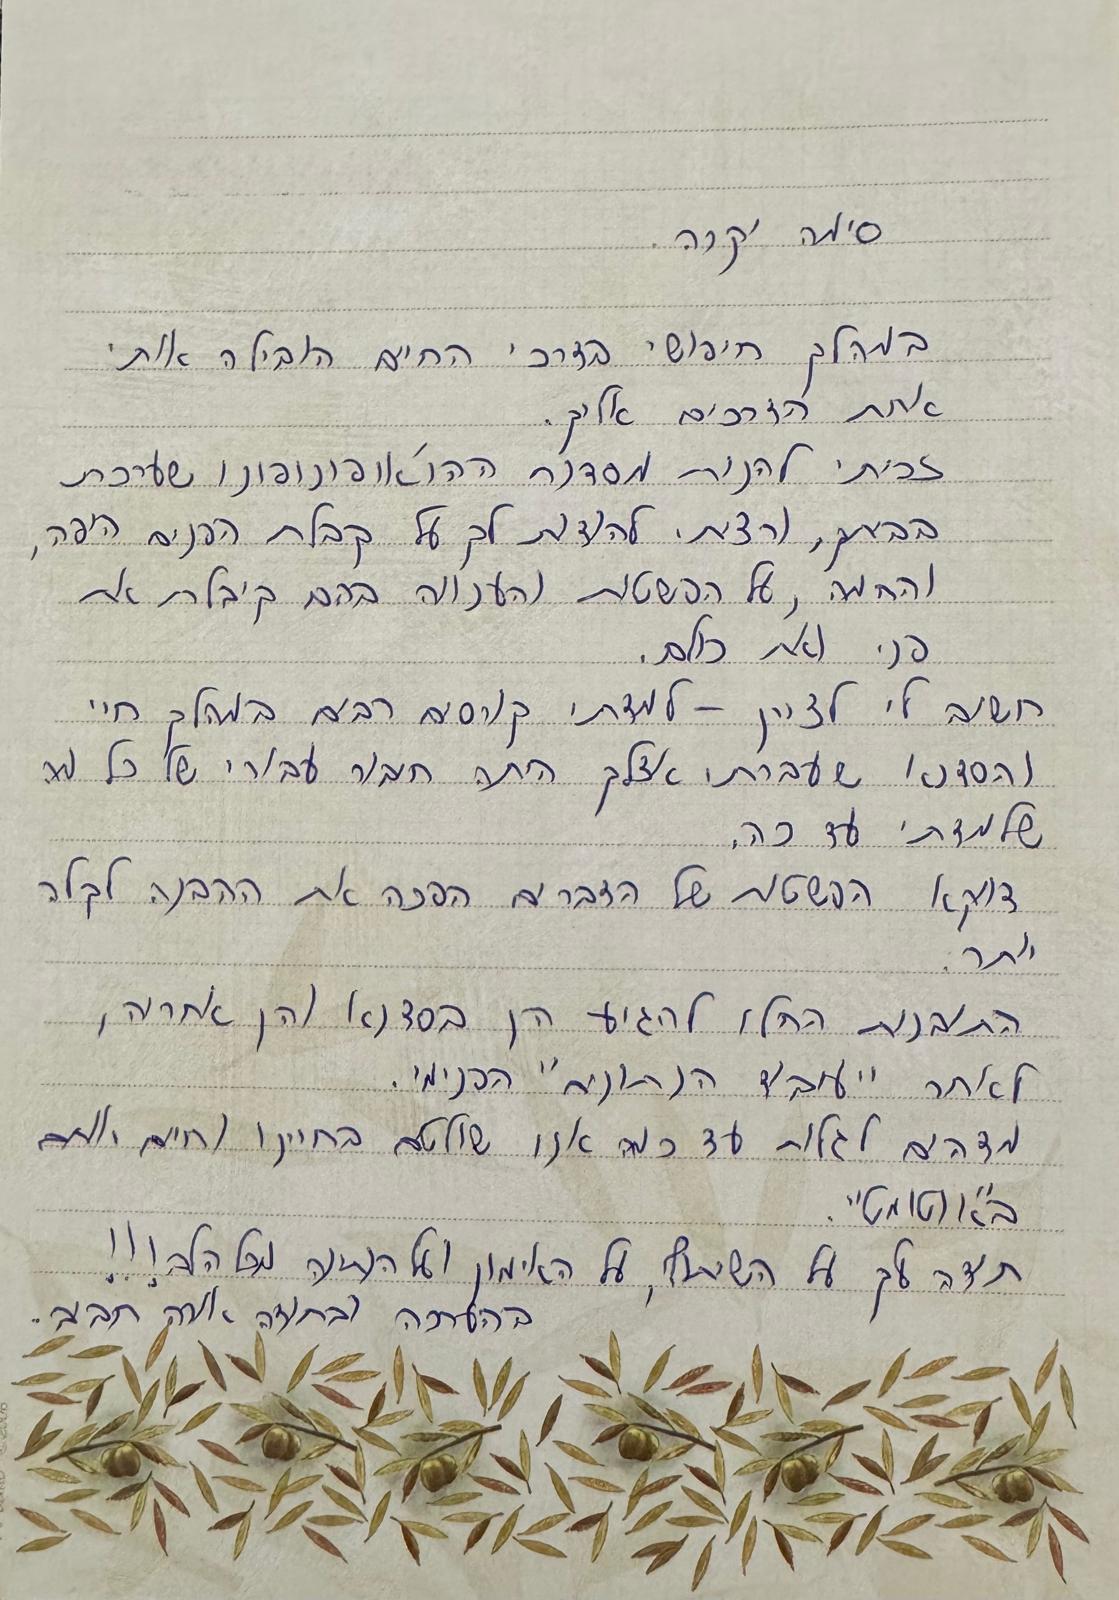 סימה יקרה.
במהלך חיפושי בדרכי החיים הובילה אותי
אחת הדרכים אליך.
זכיתי להנות מסדנת ההו'אופונופונו שערכת
בביתך, ורציתי להודות לך על קבלת הפנים היפה,
והחמה, על הפשטות והענווה בהם קיבלת את
פני ואת כולם.
חשוב לי לציין – למדתי קורסים רבים במהלך חיי
והסדנא שעברתי אצלך היתה חיבור עבורי של כל מה
שלמדתי עד כה.
דווקא הפשטות של הדברים הפכה את ההבנה לקלה
יותר.
התובנות החלו להגיע הן בסדנא והן אחריה,
לאחר "עיבוד הנתונים" הפנימי.
מדהים לגלות עד כמה אנו שולטים בחיינו וחיים אותם
ב"אוטומט".
תודה לך על השיתוף, על האימון ועל הנתינה מכל הלב!!!
בהערכה ובתודה חביב.